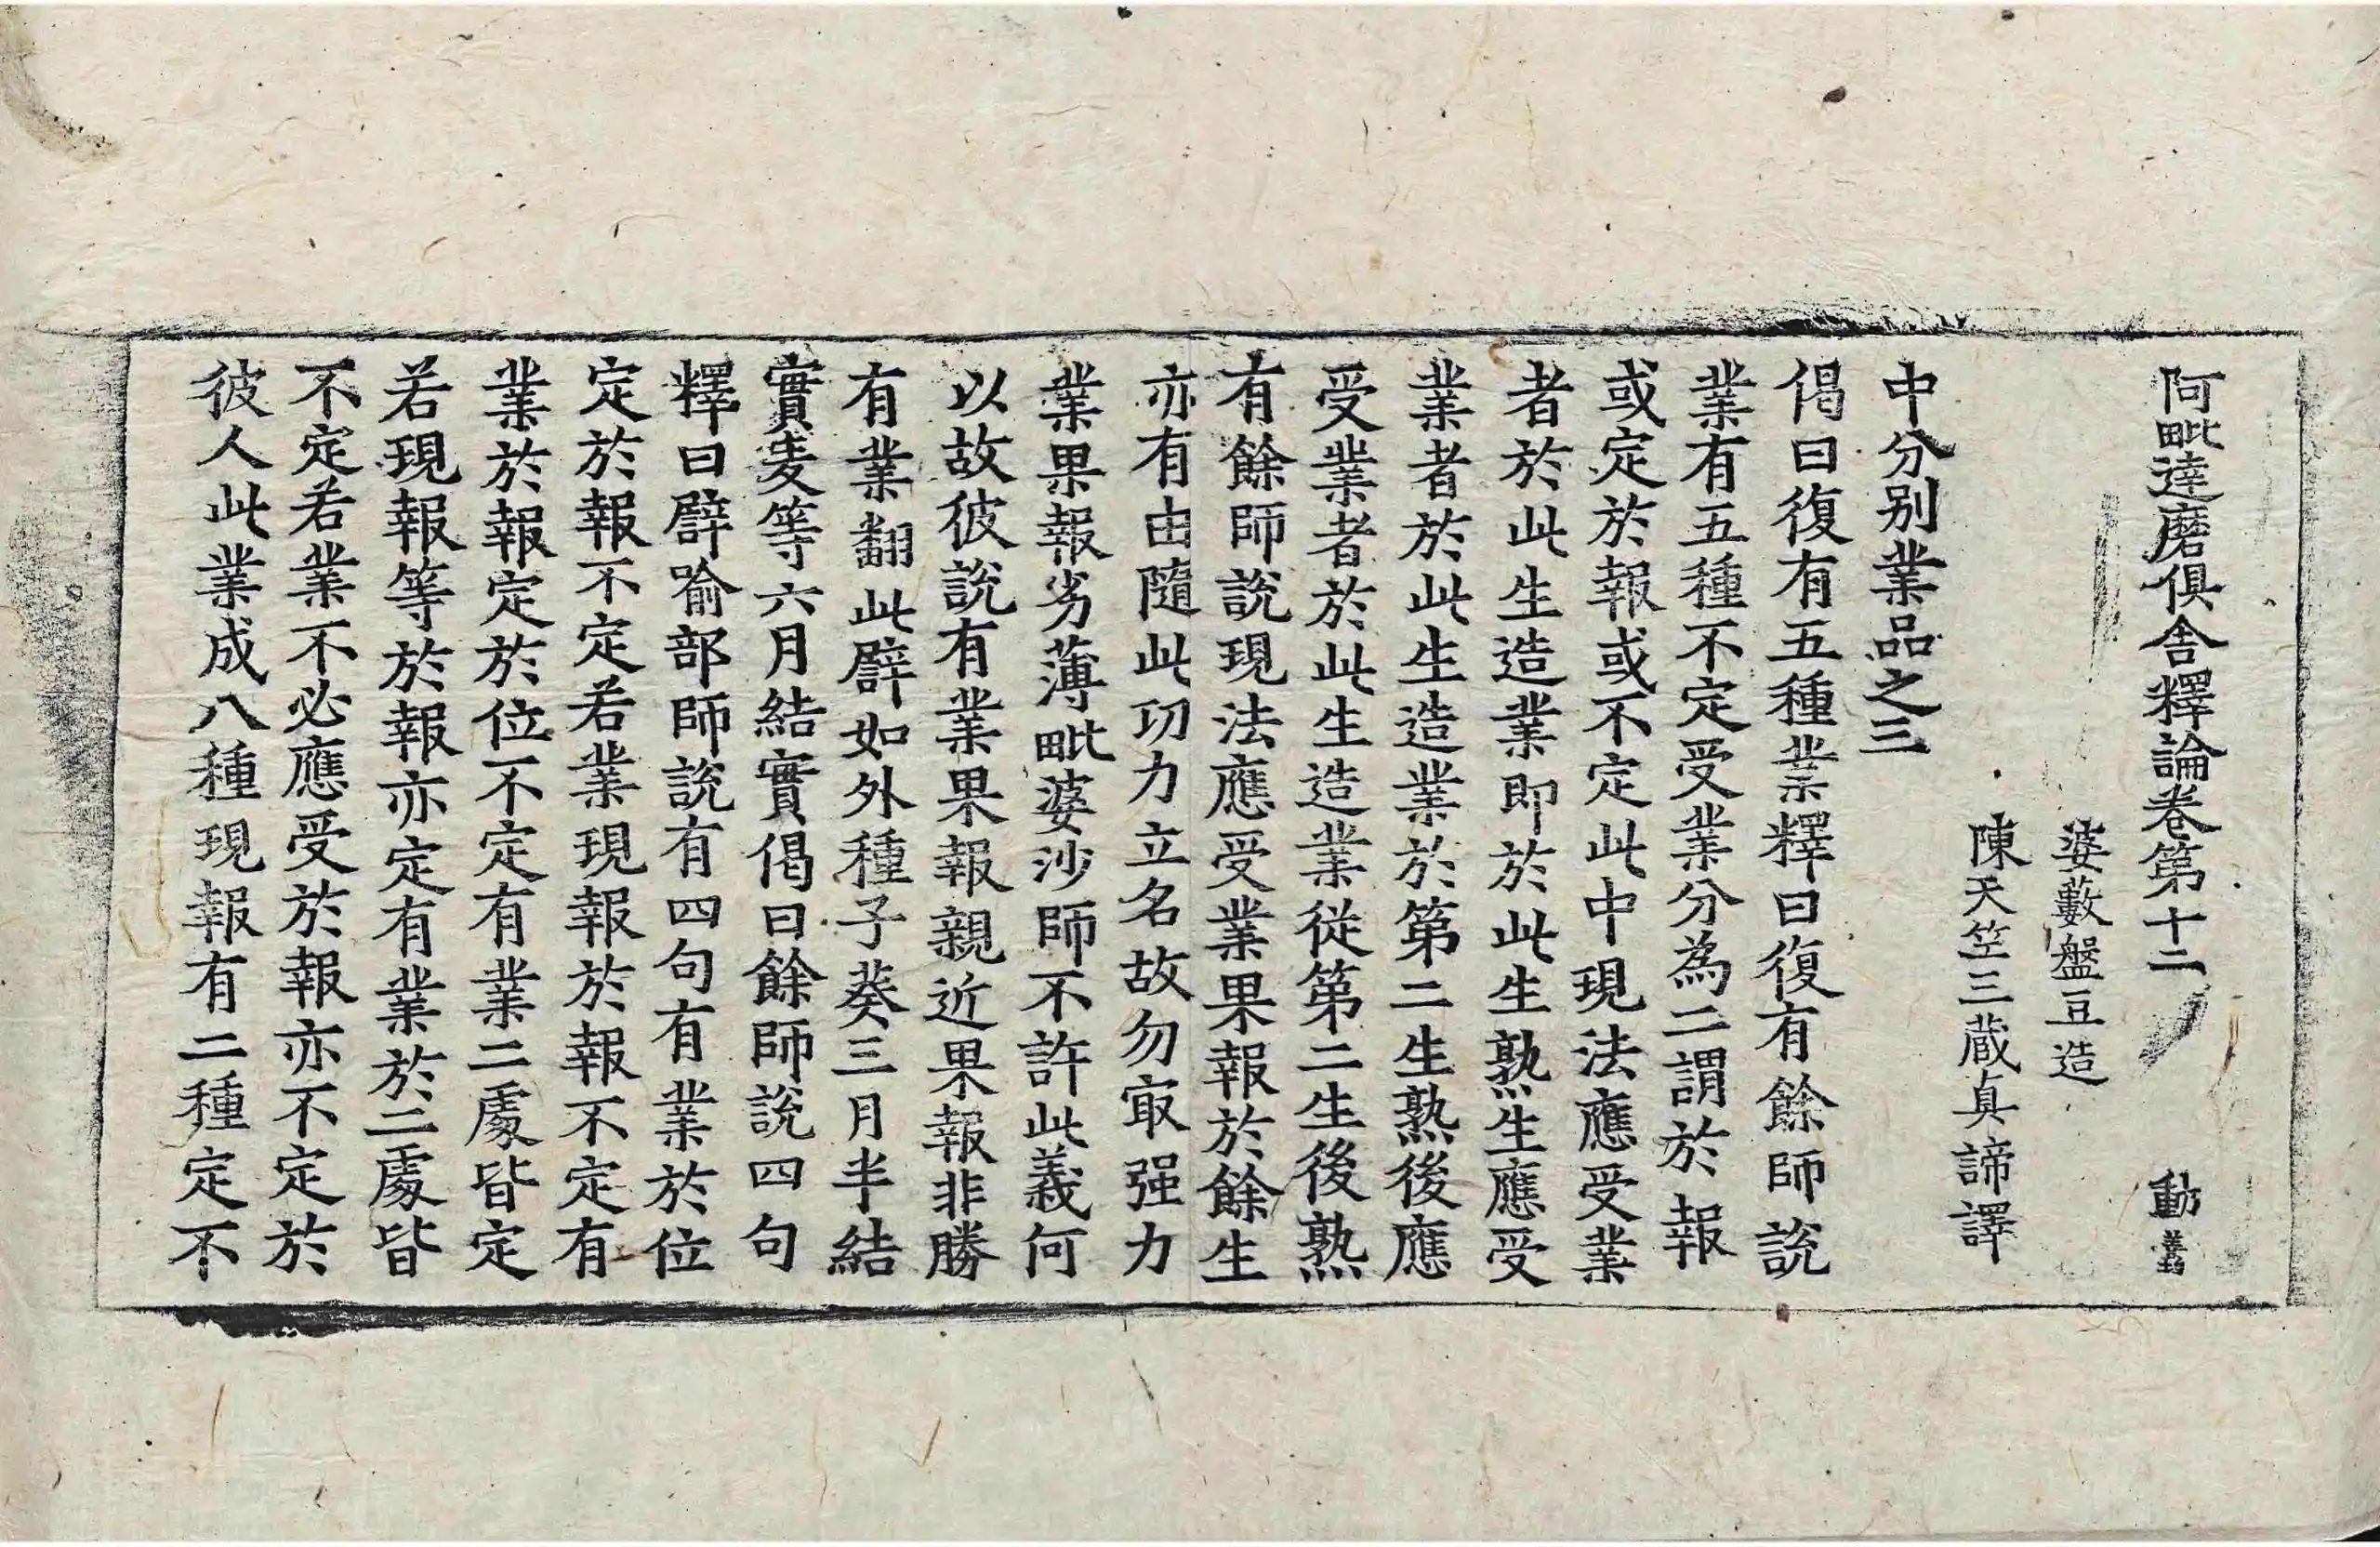 阿毗達磨俱舍釋論卷第十二 動
婆藪盤豆造
陳天竺三藏真諦譯
中分别業品之三
偈曰復有五種業釋曰復有餘師說
業有五種不定受業分為二謂於報
或定於報或不定此中現法應受業
者於此生造業即於此生熟生應受
業者於此生造業於第二生熟後應
受業者於此生造業從第二生後熟
有餘師說現法應受業果報於餘生
亦有由隨此功力立名故勿㝡强力
業果報劣薄毗婆沙師不許此義何
以故彼說有業果報親近果報非勝
有業翻此譬如外種子葵三月半結
實麦等六月結實偈曰餘師說四句
釋曰譬喻部師說有四句有業於位
定於報不定若業現報於報不定有
業於報定於位不定有業二處皆定
若現報等於報亦定有業於二處皆
不定若業不必應受於報亦不定於
彼人此業成八種現報有二種定不